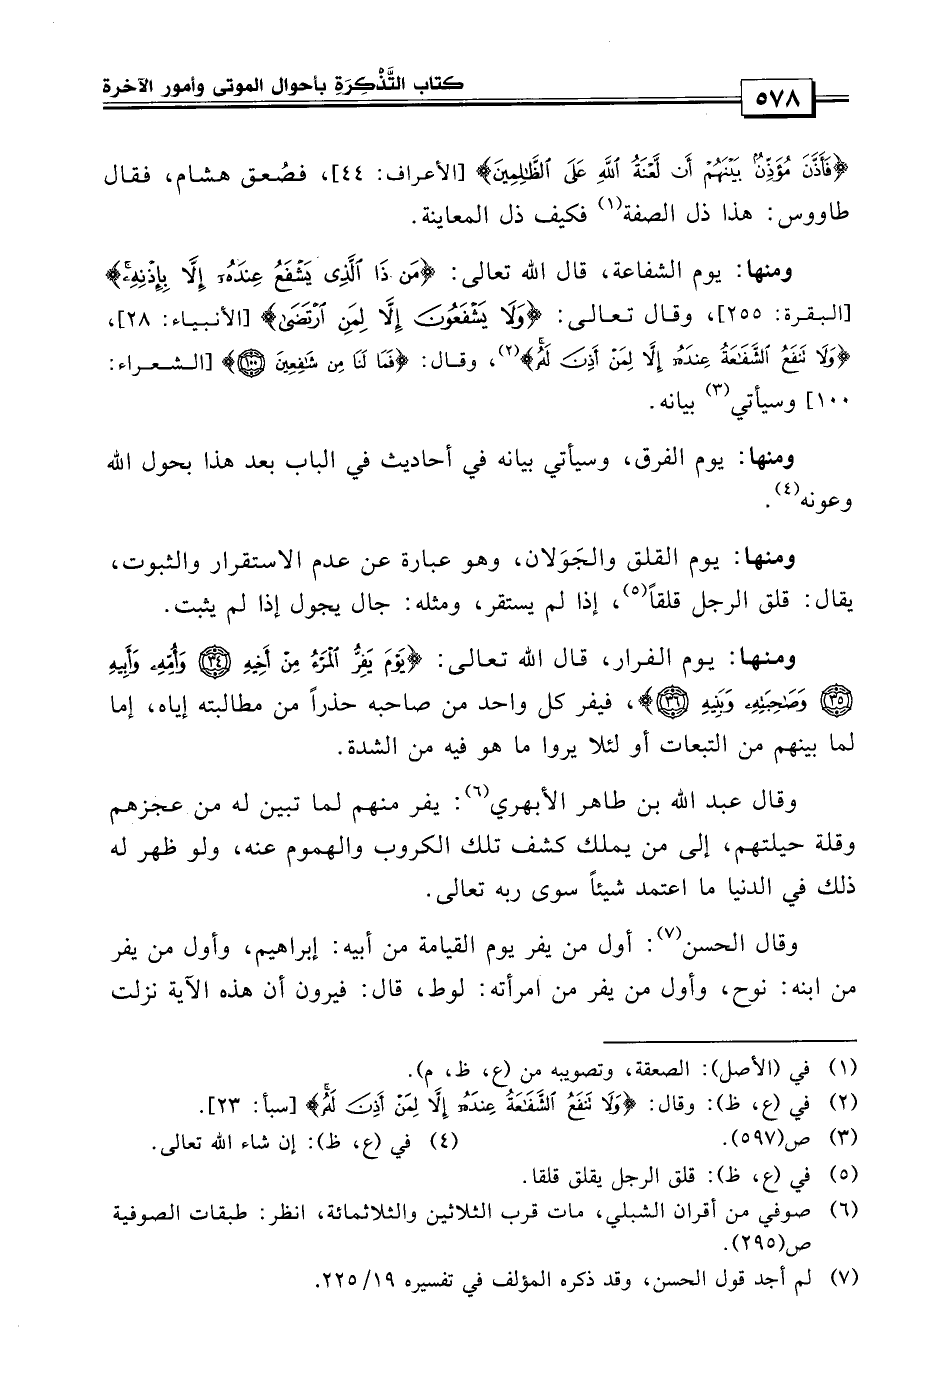 كتاب التَّذْكِرَةِ بأحوال الموتى وأمور الآخرة
٥٧٨
﴿فَأَذَّنَ مُؤَذِّنٌ بَيْنَهُمْ أَن لَّعْنَةُ ٱللَّهِ عَلَى ٱلظَّالِمِينَ﴾ [الأعراف: ٤٤]، فصُعق هشام، فقال
طاووس: هذا ذل الصفة(١) فكيف ذل المعاينة.
ومنها: يوم الشفاعة، قال الله تعالى: ﴿مَن ذَا ٱلَّذِى يَشْفَعُ عِندَهُۥٓ إِلَّا بِإِذْنِهِۦۚ﴾
[البقرة: ٢٥٥]، وقال تعالى: ﴿وَلَا يَشْفَعُونَ إِلَّا لِمَنِ ٱرْتَضَىٰ﴾ [الأنبياء: ٢٨]،
﴿وَلَا تَنفَعُ ٱلشَّفَٰعَةُ عِندَهُۥٓ إِلَّا لِمَنْ أَذِنَ لَهُۥۚ﴾(٢)، وقال: ﴿فَمَا لَنَا مِن شَٰفِعِينَ ١٠٠﴾ [الشعراء:
١٠٠] وسيأتي(٣) بيانه.
ومنها: يوم الفرق، وسيأتي بيانه في أحاديث في الباب بعد هذا بحول الله
وعونه(٤).
ومنها: يوم القلق والجَوَلان، وهو عبارة عن عدم الاستقرار والثبوت،
يقال: قلق الرجل قلقاً(٥)، إذا لم يستقر، ومثله: جال يجول إذا لم يثبت.
ومنها: يوم الفرار، قال الله تعالى: ﴿يَوْمَ يَفِرُّ ٱلْمَرْءُ مِنْ أَخِيهِ ٣٤ وَأُمِّهِۦ وَأَبِيهِ
٣٥ وَصَٰحِبَتِهِۦ وَبَنِيهِ ٣٦﴾، فيفر كل واحد من صاحبه حذراً من مطالبته إياه، إما
لما بينهم من التبعات أو لئلا يروا ما هو فيه من الشدة.
وقال عبد الله بن طاهر الأبهري(٦): يفر منهم لما تبين له من عجزهم
وقلة حيلتهم، إلى من يملك كشف تلك الكروب والهموم عنه، ولو ظهر له
ذلك في الدنيا ما اعتمد شيئاً سوى ربه تعالى.
وقال الحسن(٧): أول من يفر يوم القيامة من أبيه: إبراهيم، وأول من يفر
من ابنه: نوح، وأول من يفر من امرأته: لوط، قال: فيرون أن هذه الآية نزلت
(١) في (الأصل): الصعقة، وتصويبه من (ع، ظ، م).
(٢) في (ع، ظ): وقال: ﴿وَلَا تَنفَعُ ٱلشَّفَٰعَةُ عِندَهُۥٓ إِلَّا لِمَنْ أَذِنَ لَهُۥۚ﴾ [سبأ: ٢٣].
(٣) ص(٥٩٧). (٤) في (ع، ظ): إن شاء الله تعالى.
(٥) في (ع، ظ): قلق الرجل يقلق قلقا.
(٦) صوفي من أقران الشبلي، مات قرب الثلاثين والثلاثمائة، انظر: طبقات الصوفية
ص(٢٩٥).
(٧) لم أجد قول الحسن، وقد ذكره المؤلف في تفسيره ١٩/ ٢٢٥.